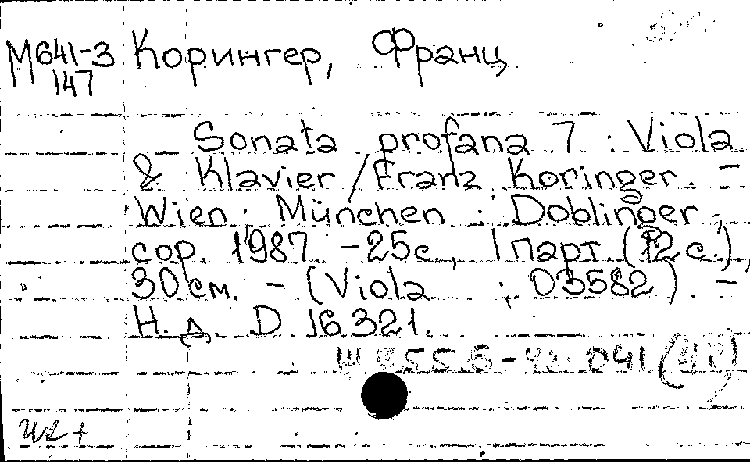 М641-3 Корингер, Франц
147
Sonata profana 7 : Viola
& Klavier / Franz Koringer. -
Wien ; München : Doblinger,
cop. 1987 - 25 с., 1 парт (12 с.),
30 см. - (Viola ; 03582). -
Н. д. D. 16.321.